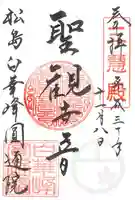 奉拝
三慧殿
平成三十年
十一月八日
聖観世音
松島白華峰圓通院